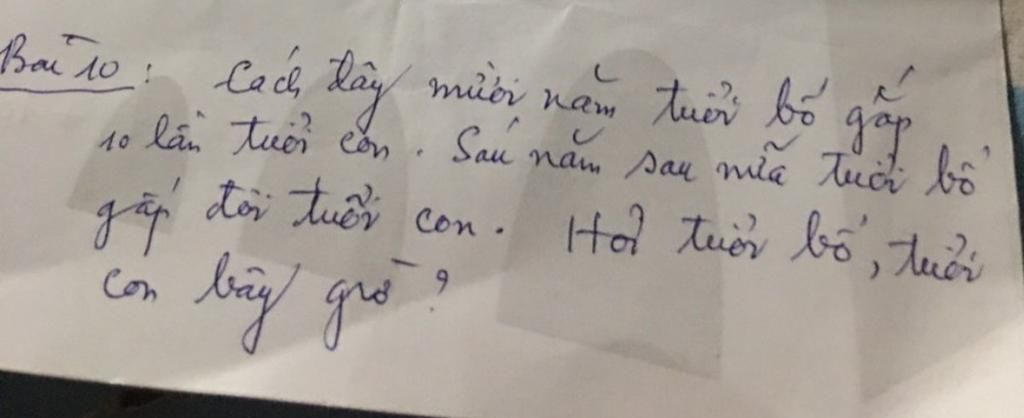 Bài 10: Cách đây mười năm tuổi bố gấp
10 lần tuổi con. Sáu năm sau nữa tuổi bố
gấp đôi tuổi con. Hỏi tuổi bố, tuổi
con bây giờ?